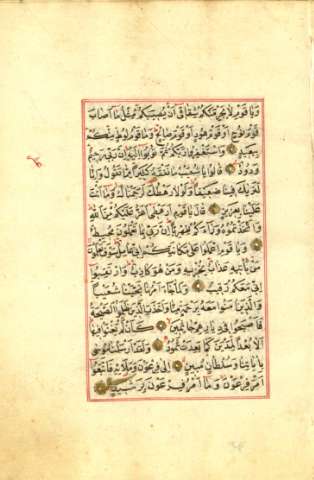 وَيَا قَوْمِ لَا يَجْرِمَنَّكُمْ شِقَاقِي أَنْ يُصِيبَكُمْ مِثْلُ مَا أَصَابَ
قَوْمَ نُوحٍ أَوْ قَوْمَ هُودٍ أَوْ قَوْمَ صَالِحٍ وَمَا قَوْمُ لُوطٍ مِنْكُمْ
بِبَعِيدٍ وَاسْتَغْفِرُوا رَبَّكُمْ ثُمَّ تُوبُوا إِلَيْهِ إِنَّ رَبِّي رَحِيمٌ
وَدُودٌ قَالُوا يَا شُعَيْبُ مَا نَفْقَهُ كَثِيرًا مِمَّا تَقُولُ وَإِنَّا
لَنَرَيكَ فِينَا ضَعِيفًا وَلَوْلَا رَهْطُكَ لَرَجَمْنَاكَ وَمَا أَنْتَ
عَلَيْنَا بِعَزِيزٍ قَالَ يَا قَوْمِ أَرَهْطِي أَعَزُّ عَلَيْكُمْ مِنَ اللَّهِ
وَاتَّخَذْتُمُوهُ وَرَاءَكُمْ ظِهْرِيًّا إِنَّ رَبِّي بِمَا تَعْمَلُونَ مُحِيطٌ
وَيَا قَوْمِ اعْمَلُوا عَلَى مَكَانَتِكُمْ إِنِّي عَامِلٌ سَوْفَ تَعْلَمُونَ
مَنْ يَأْتِيهِ عَذَابٌ يُخْزِيهِ وَمَنْ هُوَ كَاذِبٌ وَارْتَقِبُوا
إِنِّي مَعَكُمْ رَقِيبٌ وَلَمَّا جَاءَ أَمْرُنَا نَجَّيْنَا شُعَيْبًا
وَالَّذِينَ آمَنُوا مَعَهُ بِرَحْمَةٍ مِنَّا وَأَخَذَتِ الَّذِينَ ظَلَمُوا الصَّيْحَةُ
فَأَصْبَحُوا فِي دِيَارِهِمْ جَاثِمِينَ كَأَنْ لَمْ يَغْنَوْا فِيهَا
أَلَا بُعْدًا لِمَدْيَنَ كَمَا بَعِدَتْ ثَمُودُ وَلَقَدْ أَرْسَلْنَا مُوسَى
بِآيَاتِنَا وَسُلْطَانٍ مُبِينٍ إِلَى فِرْعَوْنَ وَمَلَئِهِ فَاتَّبَعُوا
أَمْرَ فِرْعَوْنَ وَمَا أَمْرُ فِرْعَوْنَ بِرَشِيدٍ